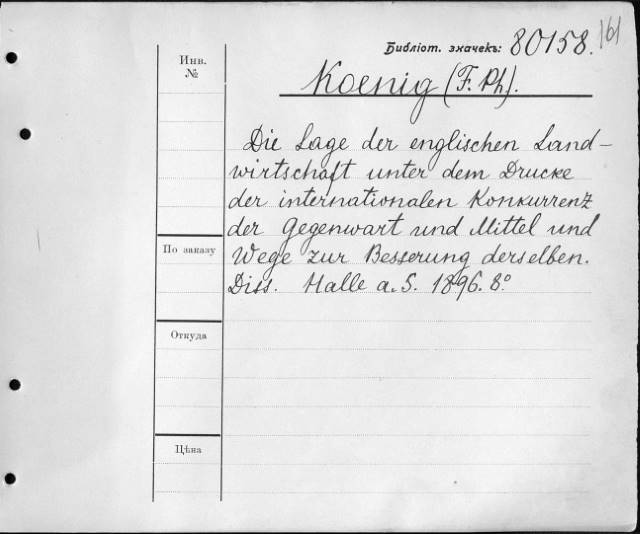 Библіот. значекъ: 80158. 161
Инв. №
Koenig (F. Ph).
Die Lage der englischen Land-
wirtschaft unter dem Drucke
der internationalen Konkurrenz
der Gegenwart und Mittel und
Wege zur Besserung derselben.
Diss. Halle a. S. 1896. 8°
По заказу
Откуда
Цѣна